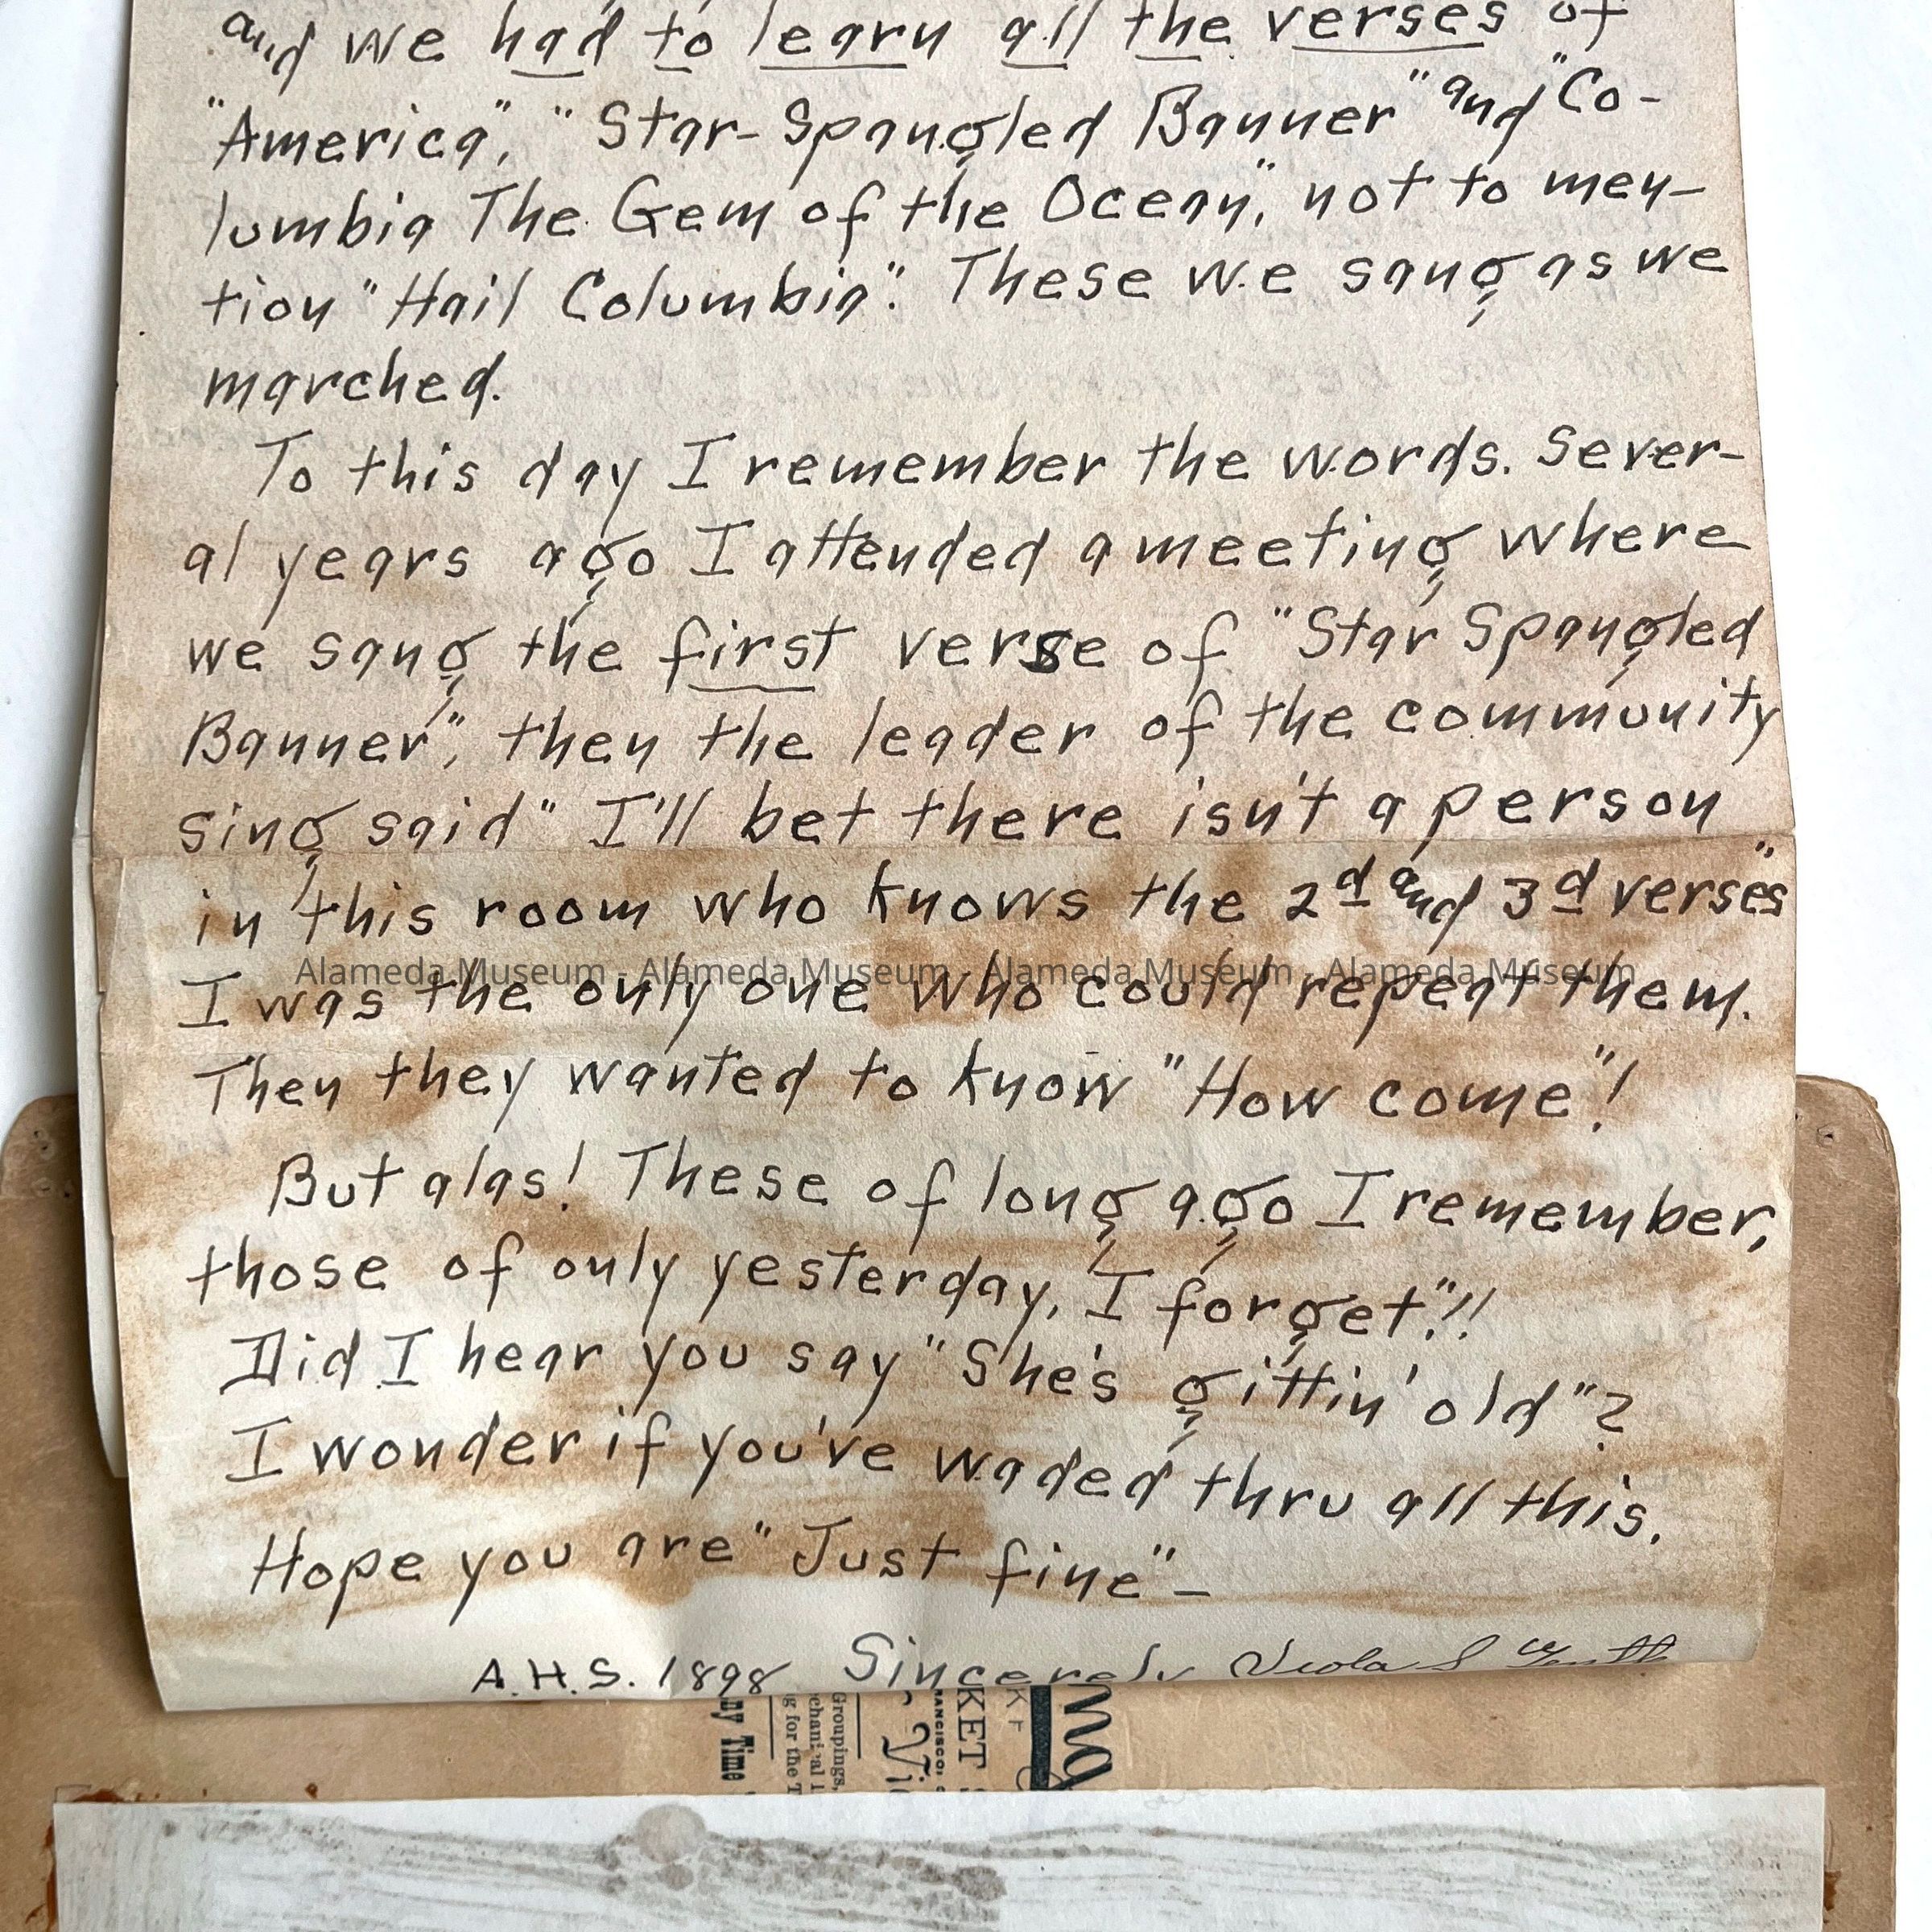 and we had to learn all the verses of
"America", "Star-Spangled Banner" and "Co-
lumbia The Gem of the Ocean", not to men-
tion "Hail Columbia". These we sang as we
marched.
To this day I remember the words. Sever-
al years ago I attended a meeting where
we sang the first verse of "Star Spangled
Banner", then the leader of the community
sing said "I'll bet there isn't a person
in this room who knows the 2d and 3d verses"
Alameda Museum - Alameda Museum - Alameda Museum - Alameda Museum
I was the only one who could repeat them.
Then they wanted to know "How come"!
But alas! These of long ago I remember,
those of only yesterday, I forget"!!
Did I hear you say "She's gittin' old"?
I wonder if you've waded thru all this.
Hope you are "Just fine"-
A.H.S. 1898 Sincerely Viola S
ny Time
g for the T
Groupings,
KET